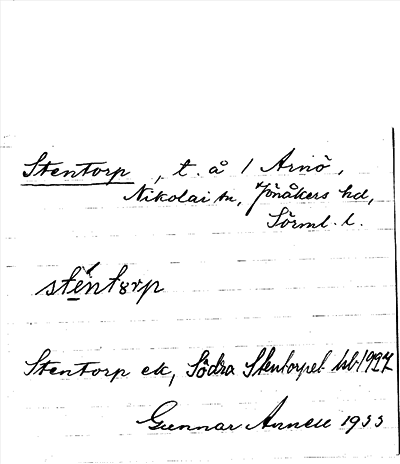 Stentorp, t. å / Arnö,
Nikolai sn, Jönåkers hd,
Sörml. l.
sténtɷrp
Stentorp ek, Södra Stentorpet hb 1927
Gunnar Arnell 1933